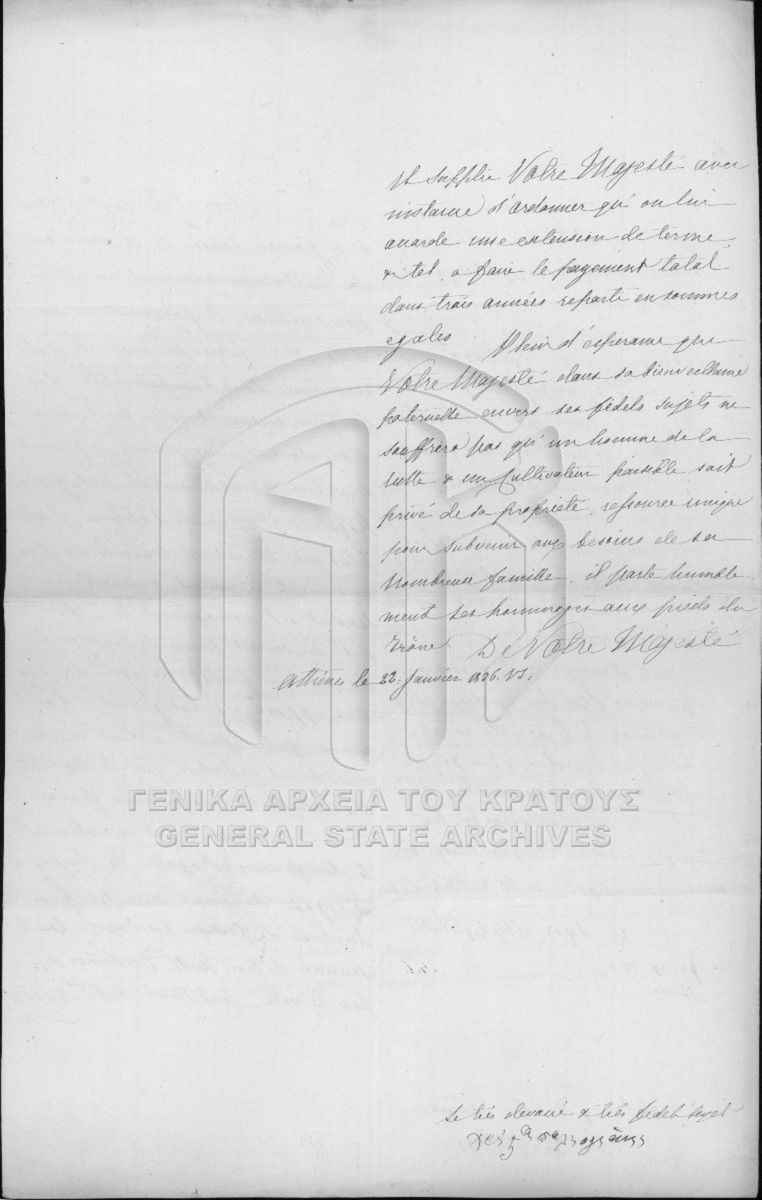 et supplie Votre Majesté avec
instance d'ordonner qu'on lui
accorde une extension de terme,
& tel, a faire le payement total
dans trois années reparti en sommes
egales. Plein d'esperance que
Votre Majesté dans sa bienveillance
paternelle envers ses fidels sujets ne
souffrira pas qu'un homme de la
lutte & un cultivateur paisible soit
privé de sa proprieté, ressource unique
pour subvenir aux besoins de sa
nombreuse famille, il porte humble
ment ses hommages aux pieds du
Trône De Votre Majesté
Athènes le 22. Janvier 1836. VS.
ΓΕΝΙΚΑ ΑΡΧΕΙΑ ΤΟΥ ΚΡΑΤΟΥΣ
GENERAL STATE ARCHIVES
Le très devoué & très fidel sujet